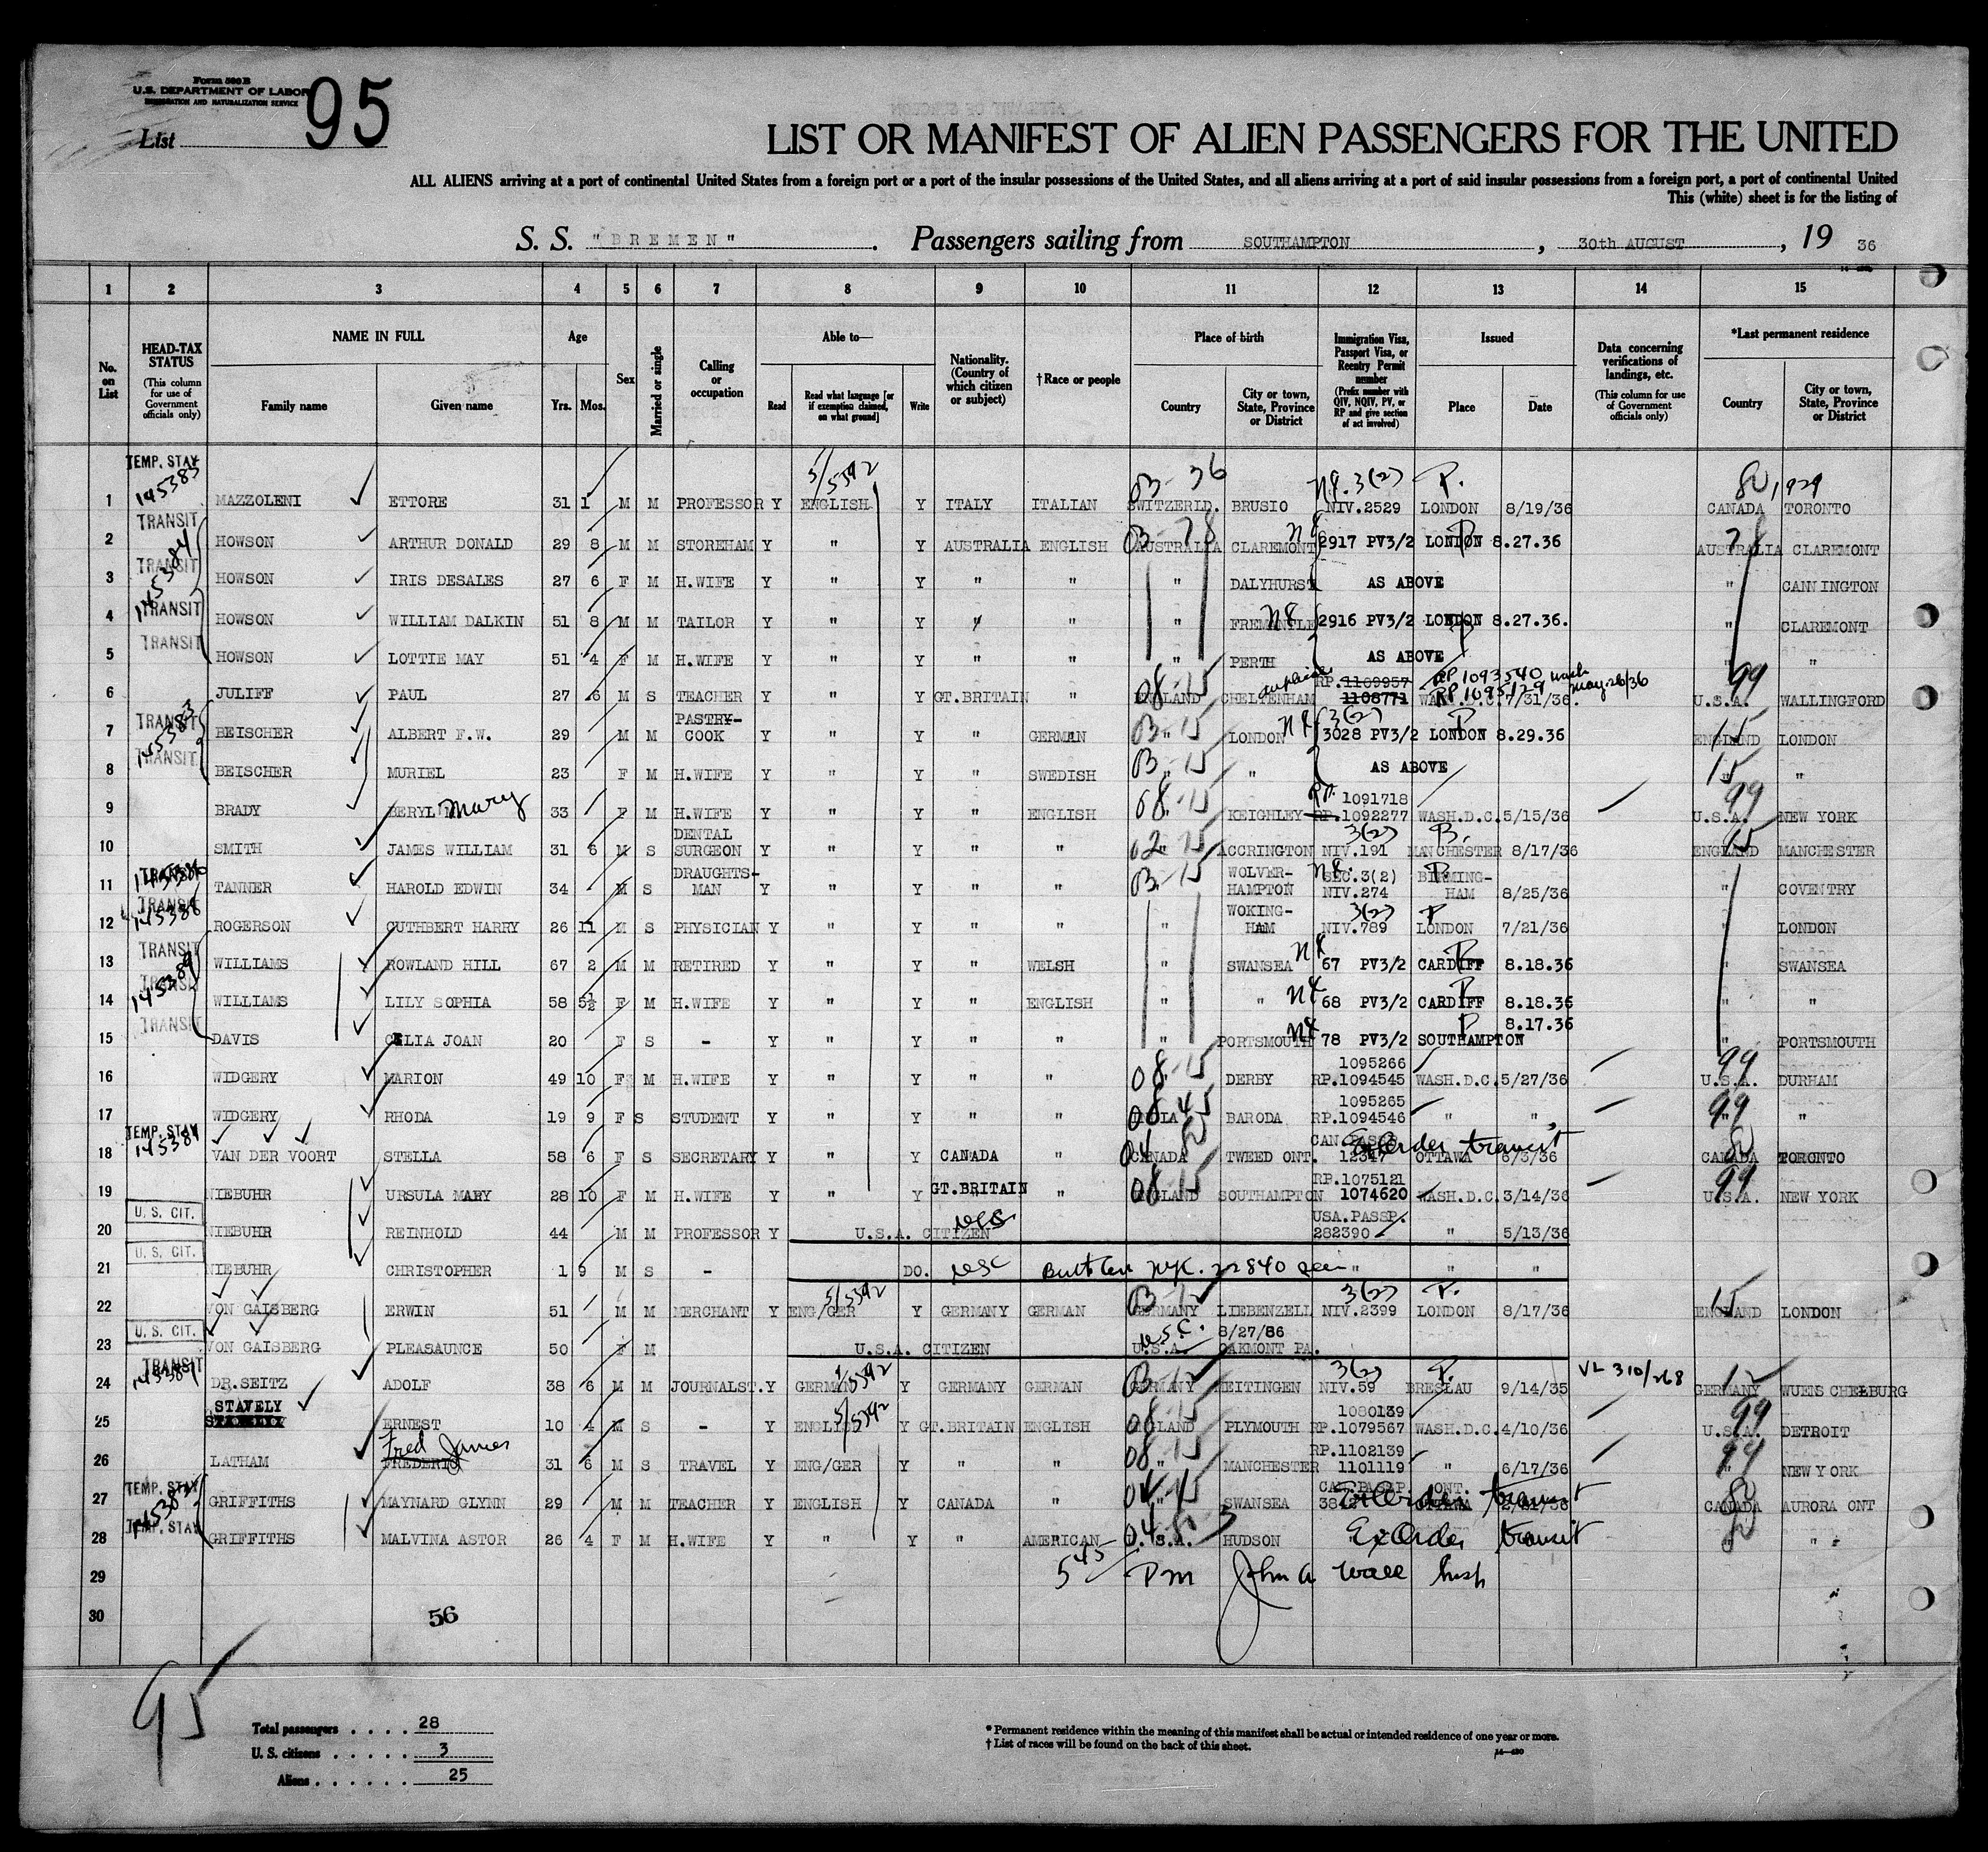 Form 500 B
U.S. DEPARTMENT OF LABOR
IMMIGRATION AND NATURALIZATION SERVICE
List 95
LIST OR MANIFEST OF ALIEN PASSENGERS FOR THE UNITED
ALL ALIENS arriving at a port of continental United States from a foreign port or a port of the insular possessions of the United States, and all aliens arriving at a port of said insular possessions from a foreign port, a port of continental United
This (white) sheet is for the listing of
S. S. "BREMEN". Passengers sailing from SOUTHAMPTON, 30th AUGUST, 19 36
1 2 3 4 5 6 7 8 9 10 11 12 13 14 15
No. on List
HEAD-TAX STATUS (This column for use of Government officials only)
NAME IN FULL
Family name Given name
Age Yrs. Mos.
Sex
Married or single
Calling or occupation
Able to—
Read Read what language [or if exemption claimed, on what ground] Write
Nationality. (Country of which citizen or subject)
†Race or people
Place of birth
Country City or town, State, Province or District
Immigration Visa, Passport Visa, or Reentry Permit number (Prefix number with QIV, NQIV, PV, or RP and give section of act involved)
Issued
Place Date
Data concerning verifications of landings, etc. (This column for use of Government officials only)
*Last permanent residence
Country City or town, State, Province or District
TEMP. STAY 145383 5/5392 03-36 3(2) P. 1929
1 MAZZOLENI ETTORE 31 1 M M PROFESSOR Y ENGLISH Y ITALY ITALIAN SWITZERLD. BRUSIO NIV.2529 LONDON 8/19/36 CANADA TORONTO
TRANSIT 145384
2 HOWSON ARTHUR DONALD 29 8 M M STOREHAM Y " Y AUSTRALIA ENGLISH AUSTRALIA CLAREMONT 2917 PV3/2 LONDON 8.27.36 AUSTRALIA CLAREMONT
TRANSIT
3 HOWSON IRIS DESALES 27 6 F M H.WIFE Y " Y " " " DALYHURST AS ABOVE " CANNINGTON
TRANSIT
4 HOWSON WILLIAM DALKIN 51 8 M M TAILOR Y " Y " " " FREMANTLE 2916 PV3/2 LONDON 8.27.36. " CLAREMONT
TRANSIT
5 HOWSON LOTTIE MAY 51 4 F M H.WIFE Y " Y " " " PERTH AS ABOVE " "
RP 1093540 May 26/36
6 JULIFF PAUL 27 6 M S TEACHER Y " Y GT.BRITAIN " ENGLAND CHELTENHAM RP.1109957 1108771 WASH.D.C. 7/31/36. U.S.A. WALLINGFORD
TRANSIT 145385
7 BEISCHER ALBERT F.W. 29 M M PASTRY-COOK Y " Y " GERMAN " LONDON 3028 PV3/2 LONDON 8.29.36 ENGLAND LONDON
TRANSIT
8 BEISCHER MURIEL 23 F M H.WIFE Y " Y " SWEDISH " " AS ABOVE " "
9 BRADY BERYL Mary 33 F M H.WIFE Y " Y " ENGLISH " KEIGHLEY 1091718 RP.1092277 WASH.D.C. 5/15/36 U.S.A. NEW YORK
10 SMITH JAMES WILLIAM 31 6 M S DENTAL SURGEON Y " Y " " " ACCRINGTON NIV.191 MANCHESTER 8/17/36 ENGLAND MANCHESTER
TRANSIT
11 TANNER HAROLD EDWIN 34 M S DRAUGHTS-MAN Y " Y " " " WOLVER-HAMPTON SEC.3(2) NIV.274 BIRMING-HAM 8/25/36 " COVENTRY
TRANSIT 145388
12 ROGERSON CUTHBERT HARRY 26 11 M S PHYSICIAN Y " Y " " " WOKING-HAM 3(2) NIV.789 LONDON 7/21/36 " LONDON
TRANSIT 145389
13 WILLIAMS ROWLAND HILL 67 2 M M RETIRED Y " Y " WELSH " SWANSEA 67 PV3/2 CARDIFF 8.18.36 " SWANSEA
TRANSIT
14 WILLIAMS LILY SOPHIA 58 5½ F M H.WIFE Y " Y " ENGLISH " " 68 PV3/2 CARDIFF 8.18.36 " "
TRANSIT
15 DAVIS CELIA JOAN 20 F S - Y " Y " " " PORTSMOUTH 78 PV3/2 SOUTHAMPTON 8.17.36 " PORTSMOUTH
16 WIDGERY MARION 49 10 F M H.WIFE Y " Y " " " DERBY 1095266 RP.1094545 WASH.D.C. 5/27/36 U.S.A. DURHAM
17 WIDGERY RHODA 19 9 F S STUDENT Y " Y " " INDIA BARODA 1095265 RP.1094546 " " " "
TEMP. STAY
18 VAN DER VOORT STELLA 58 6 F S SECRETARY Y " Y CANADA " CANADA TWEED ONT. CAN.PASSP. 12347 OTTAWA 6/3/36 ExOrder transit CANADA TORONTO
19 NIEBUHR URSULA MARY 28 10 F M H.WIFE Y " Y GT.BRITAIN " ENGLAND SOUTHAMPTON RP.1075121 1074620 WASH.D.C. 3/14/36 U.S.A. NEW YORK
U. S. CIT.
20 NIEBUHR REINHOLD 44 M M PROFESSOR Y U.S.A. CITIZEN USA.PASSP. 282390 " 5/13/36
U. S. CIT.
21 NIEBUHR CHRISTOPHER 1 9 M S - DO. USC N.Y.C. 22840 seen " " "
22 VON GAISBERG ERWIN 51 M M MERCHANT Y ENG/GER Y GERMANY GERMAN GERMANY LIEBENZELL 3(2) NIV.2399 LONDON 8/17/36 ENGLAND LONDON
U. S. CIT.
23 VON GAISBERG PLEASAUNCE 50 F M U.S.A. CITIZEN USC. U.S.A. 8/27/86 OAKMONT PA.
TRANSIT
24 DR.SEITZ ADOLF 38 6 M M JOURNALST. Y GERMAN Y GERMANY GERMAN GERMANY MEITINGEN 3(2) NIV.59 BRESLAU 9/14/35 VL 310/268 GERMANY WUENSCHELBURG
25 STAVELY ERNEST 10 4 M S - Y ENGLISH Y GT.BRITAIN ENGLISH ENGLAND PLYMOUTH 1080139 RP.1079567 WASH.D.C. 4/10/36 U.S.A. DETROIT
26 LATHAM Fred James FREDERIC 31 6 M S TRAVEL Y ENG/GER Y " " " MANCHESTER RP.1102139 1101119 " 6/17/36 " NEW YORK
TEMP. STAY
27 GRIFFITHS MAYNARD GLYNN 29 M M TEACHER Y ENGLISH Y CANADA " " SWANSEA CAN.PASSP. ONT. transit CANADA AURORA ONT
TEMP. STAY
28 GRIFFITHS MALVINA ASTOR 26 4 F M H.WIFE Y " Y " AMERICAN U.S.A. HUDSON ExOrder transit " "
29 5 45 Pm John A Wall Insp
30 56
95
Total passengers . . . . 28
U. S. citizens . . . . . 3
Aliens . . . . . . 25
* Permanent residence within the meaning of this manifest shall be actual or intended residence of one year or more.
† List of races will be found on the back of this sheet.